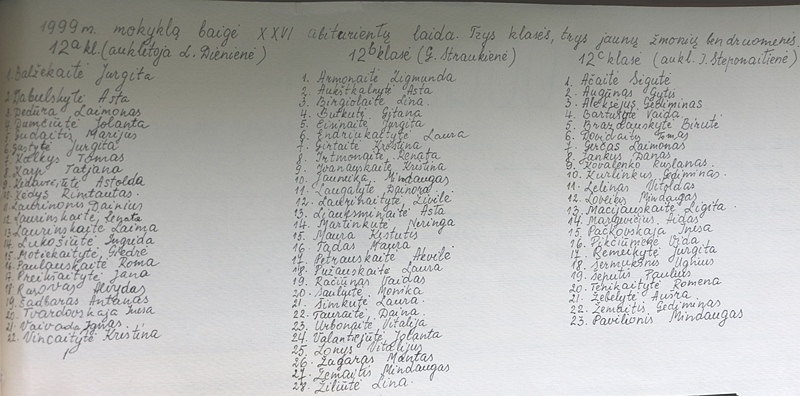 1999 m. mokyklą baigė XXVI abiturientų laida. Trys klasės, trys jaunų žmonių bendruomenės
12ᵃ kl. (auklėtoja L. Dienienė)
1. Balžekaitė Jurgita
2. Dabulskytė Asta
3. Dedūra Laimonas
4. Dumčiūtė Jolanta
5. Judaitis Marijus
6. Gastytė Jurgita
7. Kalkys Tomas
8. Kayn Tatjana
9. Astolda
10. Kėdys Rimtautas
11. Laurinonis Dainius
12. Laurinskaitė Renata
13. Laurinskaitė Laima
14. Lukošiūtė Ingrida
15. Motiekaitytė Giedrė
16. Paulauskaitė Roma
17. Preikšaitytė Jana
18. Rasovas Alvydas
19. Žadbaras Antanas
20. Tvardovskaja Inesa
21. Vaivada Ignas
22. Vincaitytė Kristina
12ᵇ klasė (G. Straukienė)
1. Armonaitė Zigmunda
2. Aukštkalnytė Asta
3. Birgiolaitė Lina
4. Butkutė Gitana
5. Eininaitė Jurgita
6. Endriukaitytė Laura
7. Girtaitė Kristina
8. Intmonaitė Renata
9. Ivanauskaitė Kristina
10. Jauneika Mindaugas
11. Laugalytė Dainora
12. Laurinaitytė Livilė
13. Liauksminaitė Asta
14. Martinkutė Neringa
15. Maura Kęstutis
16. Tadas Maura
17. Petrauskaitė Akvilė
18. Pužauskaitė Laura
19. Račiūnas Vaidas
20. Saulytė Monika
21. Simkutė Laura
22. Tauraitė Daina
23. Urbonaitė Vitalija
24. Valantiejūtė Jolanta
25. Lonys Vitalijus
26. Žagaras Mantas
27. Žemaitis Mindaugas
28. Žiliūtė Lina
12ᶜ klasė (aukl. J. Steponaitienė)
1. Ačaitė Sigutė
2. Augūnas Gytis
3. Aleksejus Gediminas
4. Bartušytė Vaida
5. Brazdauskytė Birutė
6. Dovidaitis Tomas
7. Gerčas Laimonas
8. Jankus Danas
9. Kovalenko Ruslanas
10. Kurlinkus Gediminas
11. Zelinas Vitoldas
12. Loveikis Mindaugas
13. Macijauskaitė Ligita
14. Margevičius Aidas
15. Pačkovskaja Inesa
16. Pikčiūnienė Vida
17. Remeikytė Jurgita
18. Šermukšnis Ugnius
19. Šeputis Paulius
20. Tenikaitytė Romena
21. Žebelytė Aušra
22. Žemaitis Gediminas
23. Pavilionis Mindaugas